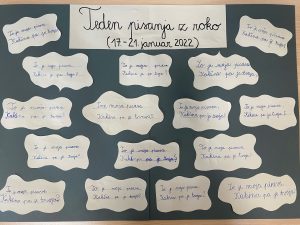 Teden pisanja z roko
(17.-21. januar 2022)
To je moja pisava.
Kakšna pa je tvoja?
To je moja pisava.
Kakšna pa je tvoja?
To je moja pisava.
Kakšna pa je tvoja?
To je moja pisava.
Kakšna pa je tvoja?
To je moja pisava.
Kakšna pa je tvoja?
To je moja pisava.
Kakšna pa je tvoja?
To je moja pisava.
Kakšna pa je tvoja?
To je moja pisava.
Kakšna pa je tvoja?
To je moja pisava.
Kakšna pa je tvoja?
To je moja pisava.
Kakšna pa je tvoja?
To je moja pisava.
Kakšna pa je tvoja?
To je moja pisava.
Kakšna pa je tvoja?
To je moja pisava.
Kakšna pa je tvoja?
To je moja pisava.
Kakšna pa je tvoja?
To je moja pisava.
Kakšna pa je tvoja?
To je moja pisava.
Kakšna pa je tvoja?
To je moja pisava.
Kakšna pa je tvoja?